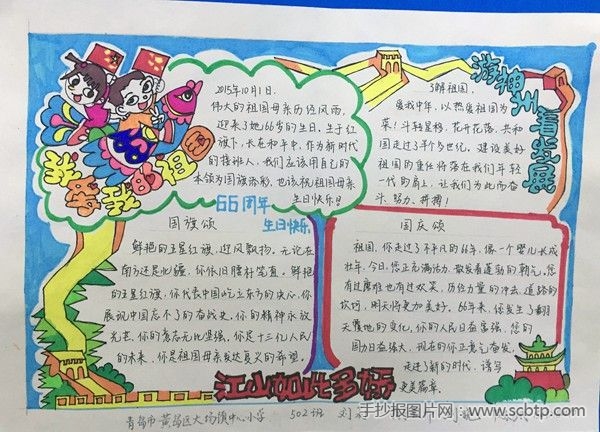 2015年10月1日,
伟大的祖国母亲历经风雨,
迎来了她66岁的生日。生于红
旗下,长在和平中,作为新时代
的接班人,我们应该用自己的
本领为国旗添彩,也该祝祖国母亲
生日快乐!
我爱我的祖国
66周年
生日快乐
了解祖国,
爱我中华,以热爱祖国为
荣!斗转星移,花开花落,共和
国走过了半个多世纪。建设美好
祖国的重任将落在我们年轻
一代的肩上,让我们为此而奋
斗、努力、拼搏!
国旗颂
鲜艳的五星红旗,迎风飘扬。无论在
南方还是北疆,你依旧腰杆笔直。鲜艳
的五星红旗,你代表中国屹立东方的决心,你
展现中国永不了的奋战史。你的精神永放
光芒,你的意志无比坚强,你是十三亿人民
的未来,你是祖国母亲发达复义的希望。
国庆颂
祖国,你走过了不平凡的66年,像一个婴儿长成
壮年。今日,您正充满活力,散发着蓬勃的朝气。您
有过磨难也有过欢笑,历经力量的冲击,道路的
坎坷,明天将更加美好。66年来,你发生了翻
天覆地的变化,你的人民日益富强,您的
国力日益强大,现在的你正意气奋发,
走进了新的时代,谱写
更美篇章。
江山如此多娇
青岛市黄岛区大场镇中心小学 502班 刘
手抄报图片网
www.scbtp.com